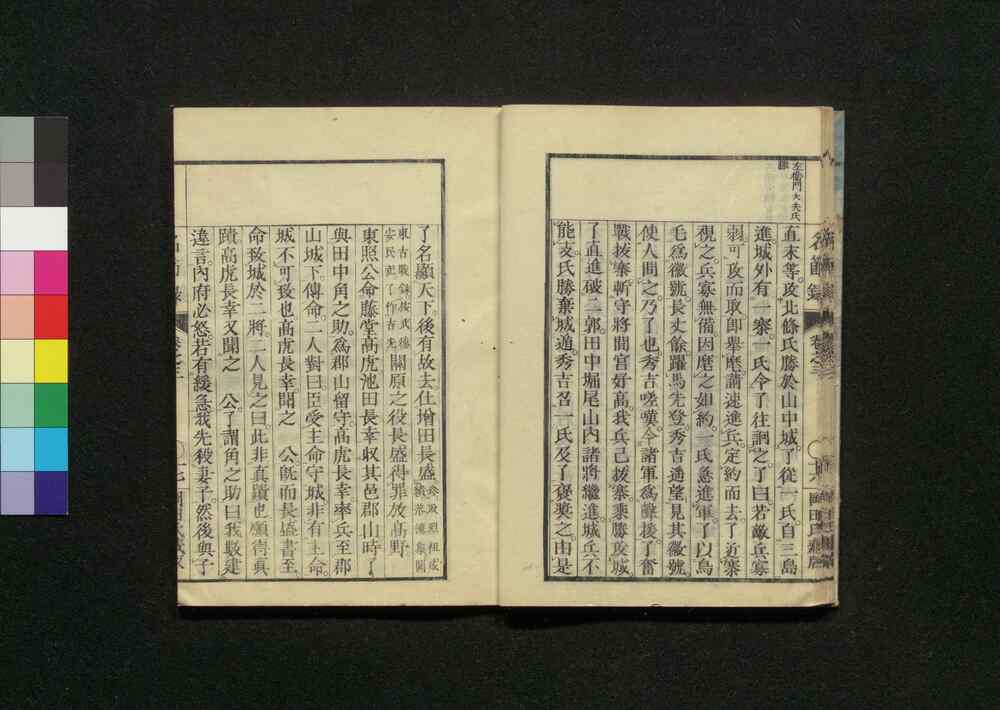 左衞門大夫氏
勝
直末等。攻北條氏勝於山中城。了從一氏。自三島
進。城外有一寨。一氏令了往詗之。了曰。若敵兵寡
弱。可攻而取。卽擧麾。請速進兵。定約而去。了近寨
視之。兵寡無備。因麾之如約。一氏急進軍。了以鳥
毛爲徽號。長丈餘。躍馬先登。秀吉遙望見其徽號。
使人問之。乃了也。秀吉嗟嘆。令諸軍爲聲援。了奮
戰拔寨。斬守將間宮好高。我兵已拔寨。乘勝攻城。
了直進破二郭。田中堀尾山内諸將繼進。城兵不
能支。氏勝棄城遁。秀吉召一氏及了褒奬之。由是
名節錄 卷之三 岡田氏藏版
了名顯天下。後有故去仕增田長盛。
東古戰錄按武德
安民記了作吉先
關原之役。長盛得罪放高野。
東照公命藤堂高虎池田長幸。收其邑郡山。時了
與田中角之助。爲郡山留守。高虎長幸率兵至郡
山城下傳命。二人對曰。臣受主命守城。非有主命。
城不可致也。高虎長幸聞之 公。旣而長盛書至。
命致城於二將。二人見之曰。此非眞蹟也。願得眞
蹟。高虎長幸又聞之 公。了謂角之助曰。我數違
違言。内府必怒。若有緩急。我先殺妻子。然後與子